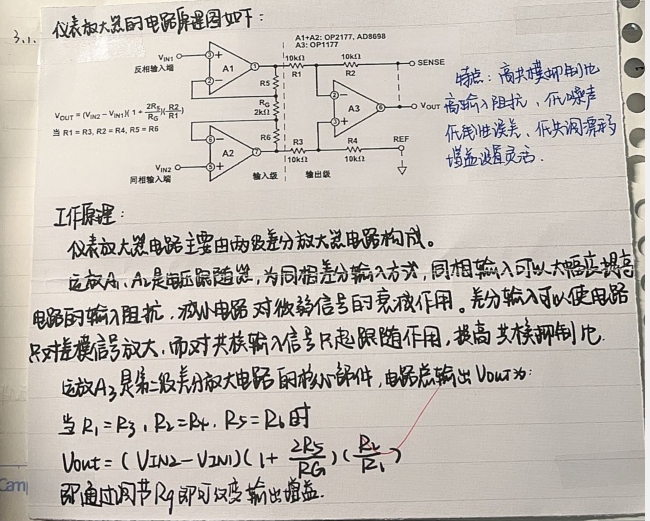 3.1. 仪表放大器的电路原理图如下:
A1+A2: OP2177, AD8698
A3: OP1177
VIN1
反相输入端
A1
10kΩ
R1
10kΩ
R2
SENSE
VOUT = (VIN2 – VIN1)(1 + 2R5/RG)(R2/R1)
当 R1 = R3, R2 = R4, R5 = R6
R5
RG
2kΩ
R6
A3
VOUT
VIN2
同相输入端
A2
输入级
输出级
R3
10kΩ
R4
10kΩ
REF
特点: 高共模抑制比
高输入阻抗, 低噪声
低线性误差, 低失调漂移
增益设置灵活.
工作原理:
仪表放大器电路主要由两级差分放大器电路构成。
运放A1、A2是电压跟随器, 为同相差分输入方式, 同相输入可以大幅度提高
电路的输入阻抗, 减小电路对微弱信号的衰减作用。差分输入可以使电路
只对差模信号放大, 而对共模输入信号只起跟随作用, 提高共模抑制比.
运放A3是第二级差分放大电路的核心部件, 电路总输出Vout为:
当 R1=R3, R2=R4, R5=R6时
Vout = (VIN2-VIN1)(1+ 2R5/RG)(R2/R1)
即通过调节Rg即可改变输出增益.
Cam